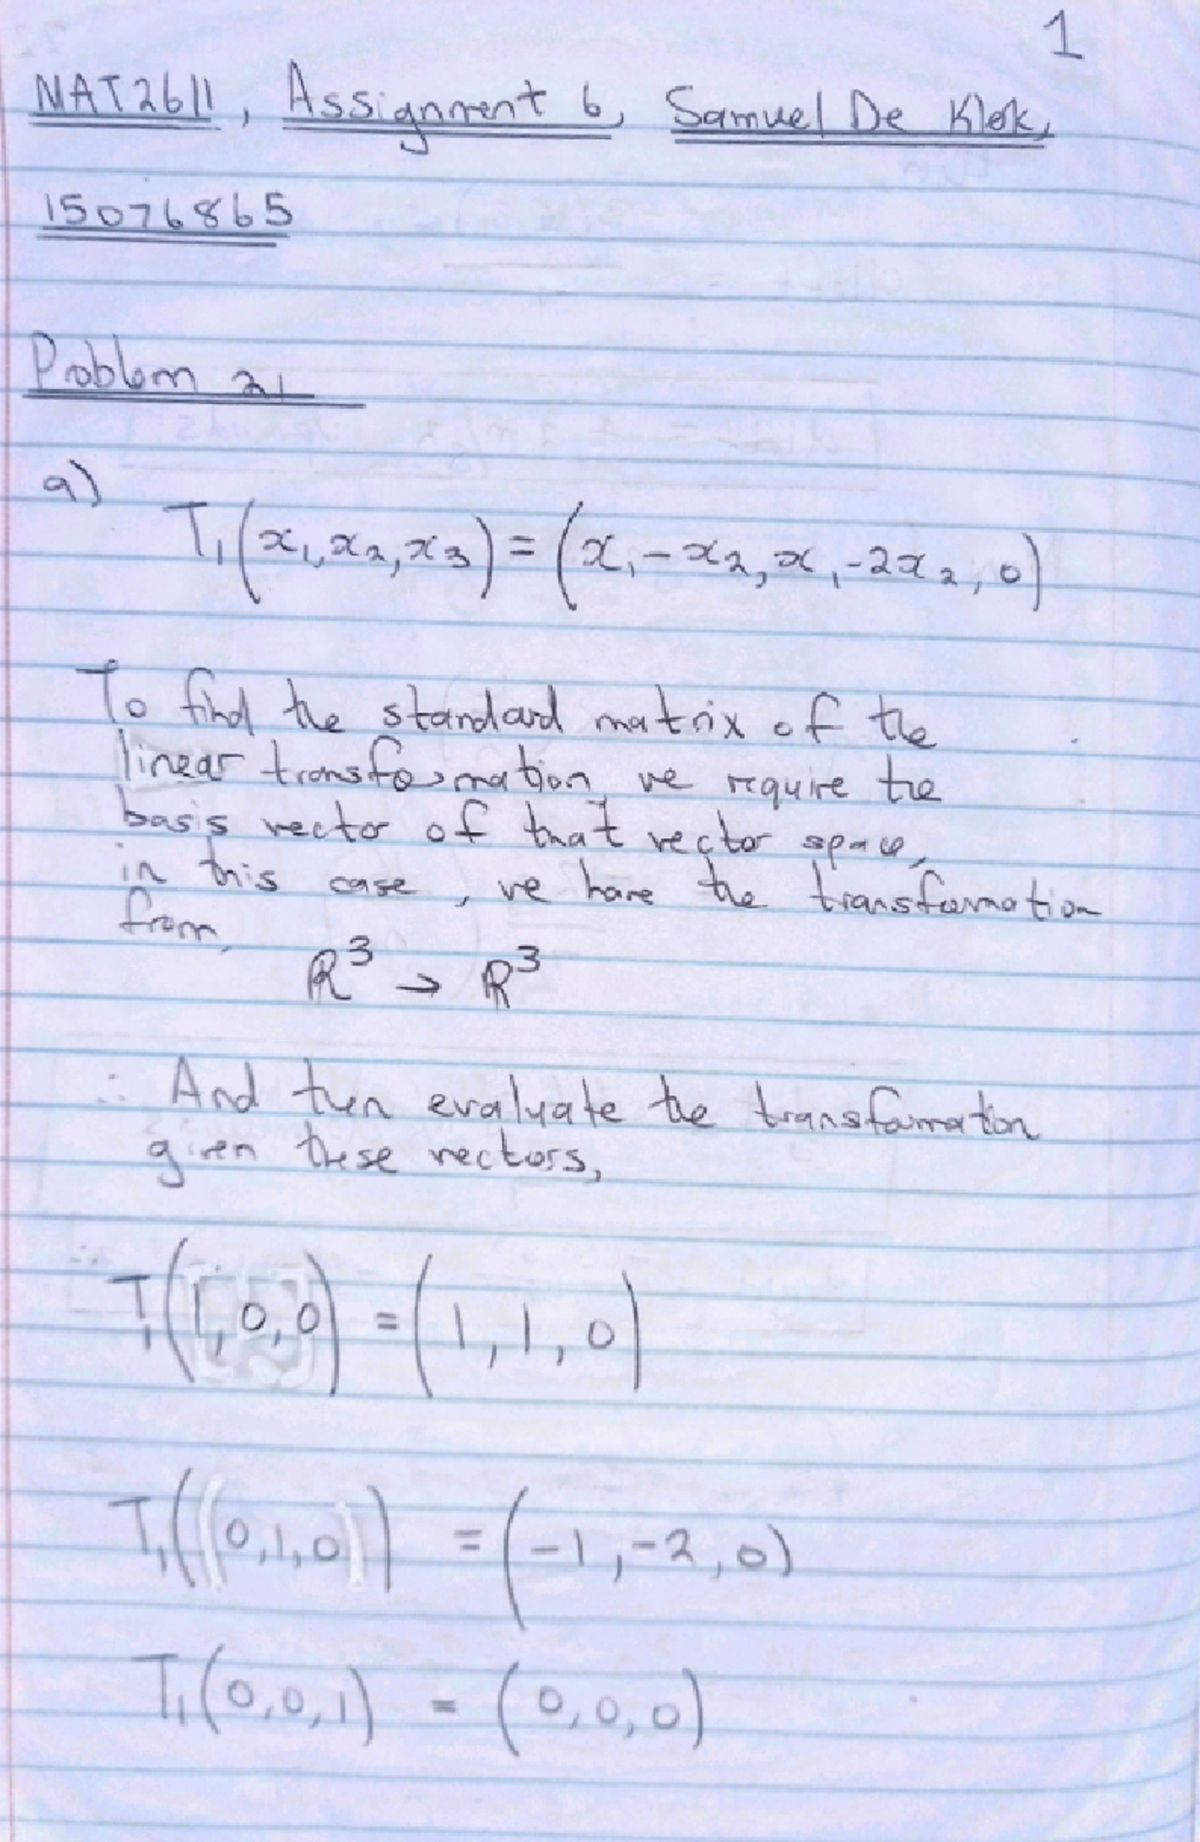 1
MAT2611, Assignment 6, Samuel De Klerk,
15076865
Problem 21
a)
T₁(x₁,x₂,x₃) = (x₁-x₂,x₁-2x₂,0)
To find the standard matrix of the
linear transformation we require the
basis vector of that vector space,
in this case, we have the transformation
from,
ℝ³ → ℝ³
∴ And then evaluate the transformation
given these vectors,
∴
T₁(1,0,0) = (1,1,0)
T₁((0,1,0)) = (-1,-2,0)
T₁(0,0,1) = (0,0,0)